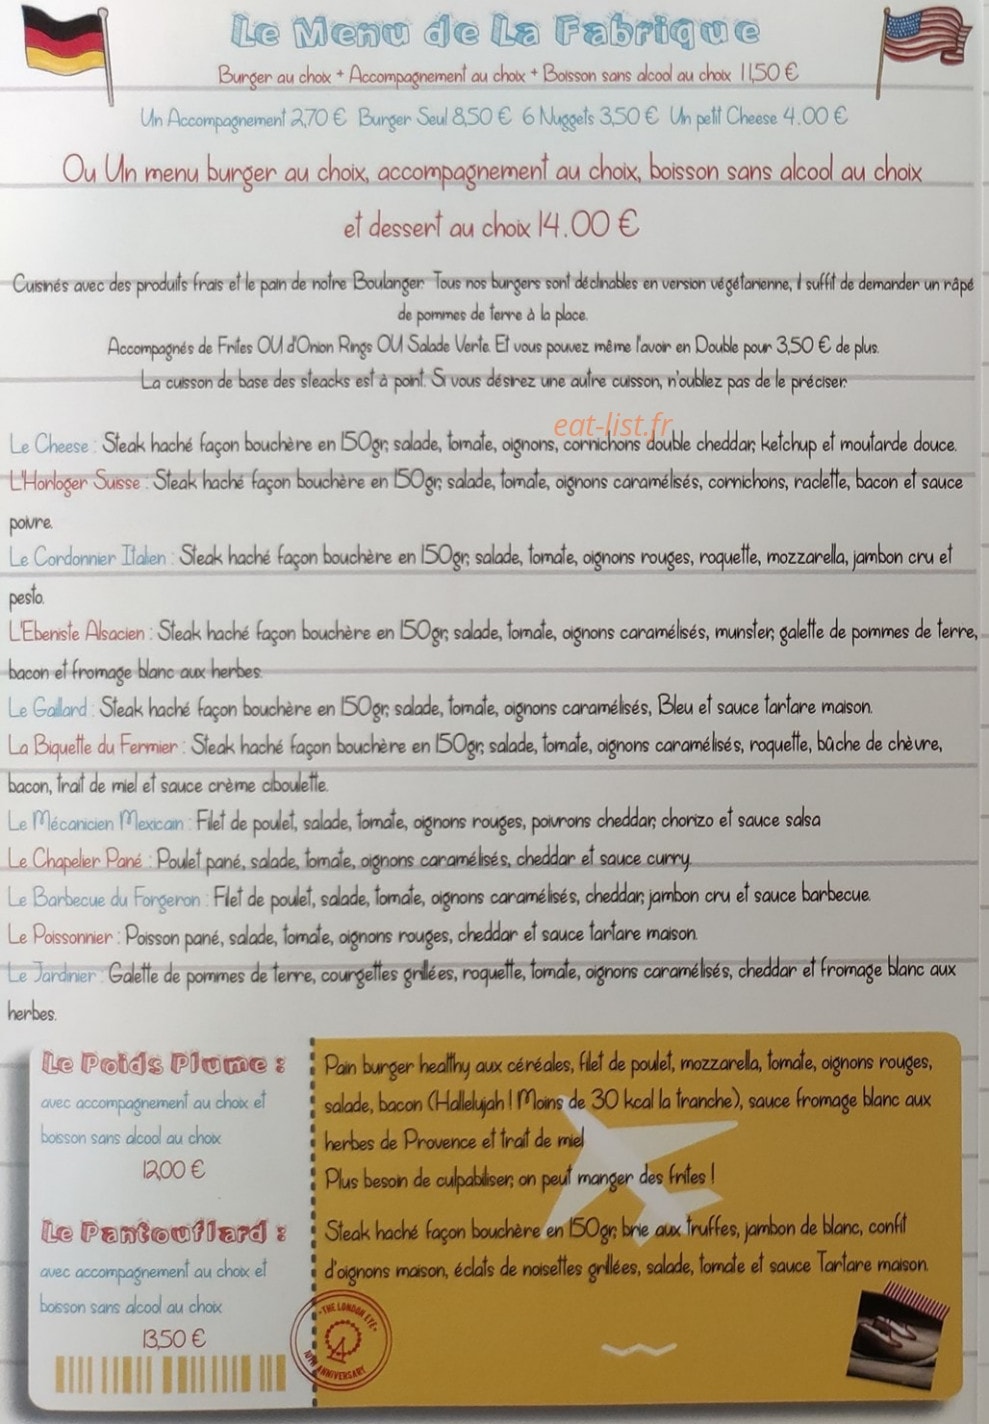 Le Menu de La Fabrique
Burger au choix + Accompagnement au choix + Boisson sans alcool au choix 11,50 €
Un Accompagnement 2,70 € Burger Seul 8,50 € 6 Nuggets 3,50 € Un petit Cheese 4.00 €
Ou Un menu burger au choix, accompagnement au choix, boisson sans alcool au choix
et dessert au choix 14.00 €
Cuisinés avec des produits frais et le pain de notre Boulanger. Tous nos burgers sont déclinables en version végétarienne, il suffit de demander un râpé
de pommes de terre à la place.
Accompagnés de Frites OU d'Onion Rings OU Salade Verte. Et vous pouvez même l'avoir en Double pour 3,50 € de plus.
La cuisson de base des steacks est à point. Si vous désirez une autre cuisson, n'oubliez pas de le préciser.
eat-list.fr
Le Cheese : Steak haché façon bouchère en 150gr, salade, tomate, oignons, cornichons double cheddar, ketchup et moutarde douce.
L'Horloger Suisse : Steak haché façon bouchère en 150gr, salade, tomate, oignons caramélisés, cornichons, raclette, bacon et sauce
poivre.
Le Cordonnier Italien : Steak haché façon bouchère en 150gr, salade, tomate, oignons rouges, roquette, mozzarella, jambon cru et
pesto.
L'Ebeniste Alsacien : Steak haché façon bouchère en 150gr, salade, tomate, oignons caramélisés, munster, galette de pommes de terre,
bacon et fromage blanc aux herbes.
Le Gaillard : Steak haché façon bouchère en 150gr, salade, tomate, oignons caramélisés, Bleu et sauce tartare maison.
La Biquette du Fermier : Steak haché façon bouchère en 150gr, salade, tomate, oignons caramélisés, roquette, bûche de chèvre,
bacon, trait de miel et sauce crème ciboulette.
Le Mécanicien Mexicain : Filet de poulet, salade, tomate, oignons rouges, poivrons cheddar, chorizo et sauce salsa
Le Chapelier Pané : Poulet pané, salade, tomate, oignons caramélisés, cheddar et sauce curry.
Le Barbecue du Forgeron : Filet de poulet, salade, tomate, oignons caramélisés, cheddar, jambon cru et sauce barbecue.
Le Poissonnier : Poisson pané, salade, tomate, oignons rouges, cheddar et sauce tartare maison.
Le Jardinier : Galette de pommes de terre, courgettes grillées, roquette, tomate, oignons caramélisés, cheddar et fromage blanc aux
herbes.
Le Poids Plume :
avec accompagnement au choix et
boisson sans alcool au choix
12,00 €
Pain burger healthy aux céréales, filet de poulet, mozzarella, tomate, oignons rouges,
salade, bacon (Hallelujah ! Moins de 30 kcal la tranche), sauce fromage blanc aux
herbes de Provence et trait de miel
Plus besoin de culpabiliser, on peut manger des frites !
Le Pantouflard :
avec accompagnement au choix et
boisson sans alcool au choix
13,50 €
Steak haché façon bouchère en 150gr, brie aux truffes, jambon de blanc, confit
d'oignons maison, éclats de noisettes grillées, salade, tomate et sauce Tartare maison.
THE LONDON EYE
10TH ANNIVERSARY